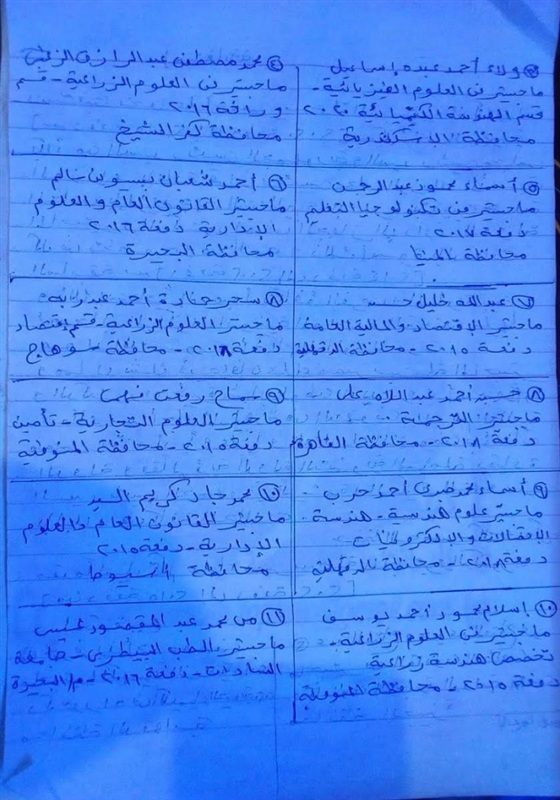 ولاء أحمد عبده إسماعيل
ماجستير فى العلوم الفيزيائية -
قسم الهندسة الكيميائية ٢٠٢٠
محافظة الإسكندرية
محمد مصطفى عبد الرازق
ماجستير فى العلوم الزراعية - قسم
وراثة ٢٠١٦
محافظة كفر الشيخ
أسماء محمود عبد الرحمن
ماجستير من تكنولوجيا التعليم
دفعة ٢٠١٧
محافظة المنيا
٦ أحمد شعبان بسيونى سالم
ماجستير القانون العام والعلوم
الإدارية دفعة ٢٠١٦
محافظة البحيرة
٧ عبد الله خليل حسن
ماجستير الإقتصاد والمالية العامة
دفعة ٢٠١٥ - محافظة الدقهلية
٨ سحر جنادة أحمد عبد ربه
ماجستير العلوم الزراعية - قسم إقتصاد
دفعة ٢٠١٨ - محافظة سوهاج
٨ أحمد عبد اللاه على
ماجستير الترجمة
دفعة ٢٠١٨ - محافظة القاهرة
٩ سماح رفعت
ماجستير العلوم التجارية - تأمين
دفعة ٢٠١٥ - محافظة المنوفية
٩ أسماء محمد صبرى أحمد حرب
ماجستير علوم هندسة - هندسة
الإتصالات والإلكترونيات
دفعة ٢٠١٨ - محافظة الدقهلية
١٠ محمد حماد كريم السيد
ماجستير القانون العام والعلوم
الإدارية - دفعة ٢٠١٥
محافظة أسيوط
١٠ إسلام محمود أحمد يوسف
ماجستير فى العلوم الزراعية -
تخصص هندسة زراعية
دفعة ٢٠١٥ - محافظة المنوفية
١١ محمد عبد المقصود
ماجستير الطب البيطرى - جامعة
السادات - دفعة ٢٠١٦ - م/ البحيرة